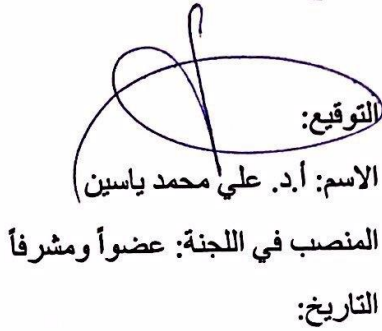 التوقيع:
الاسم: أ.د. علي محمد ياسين
المنصب في اللجنة: عضواً ومشرفاً
التاريخ: